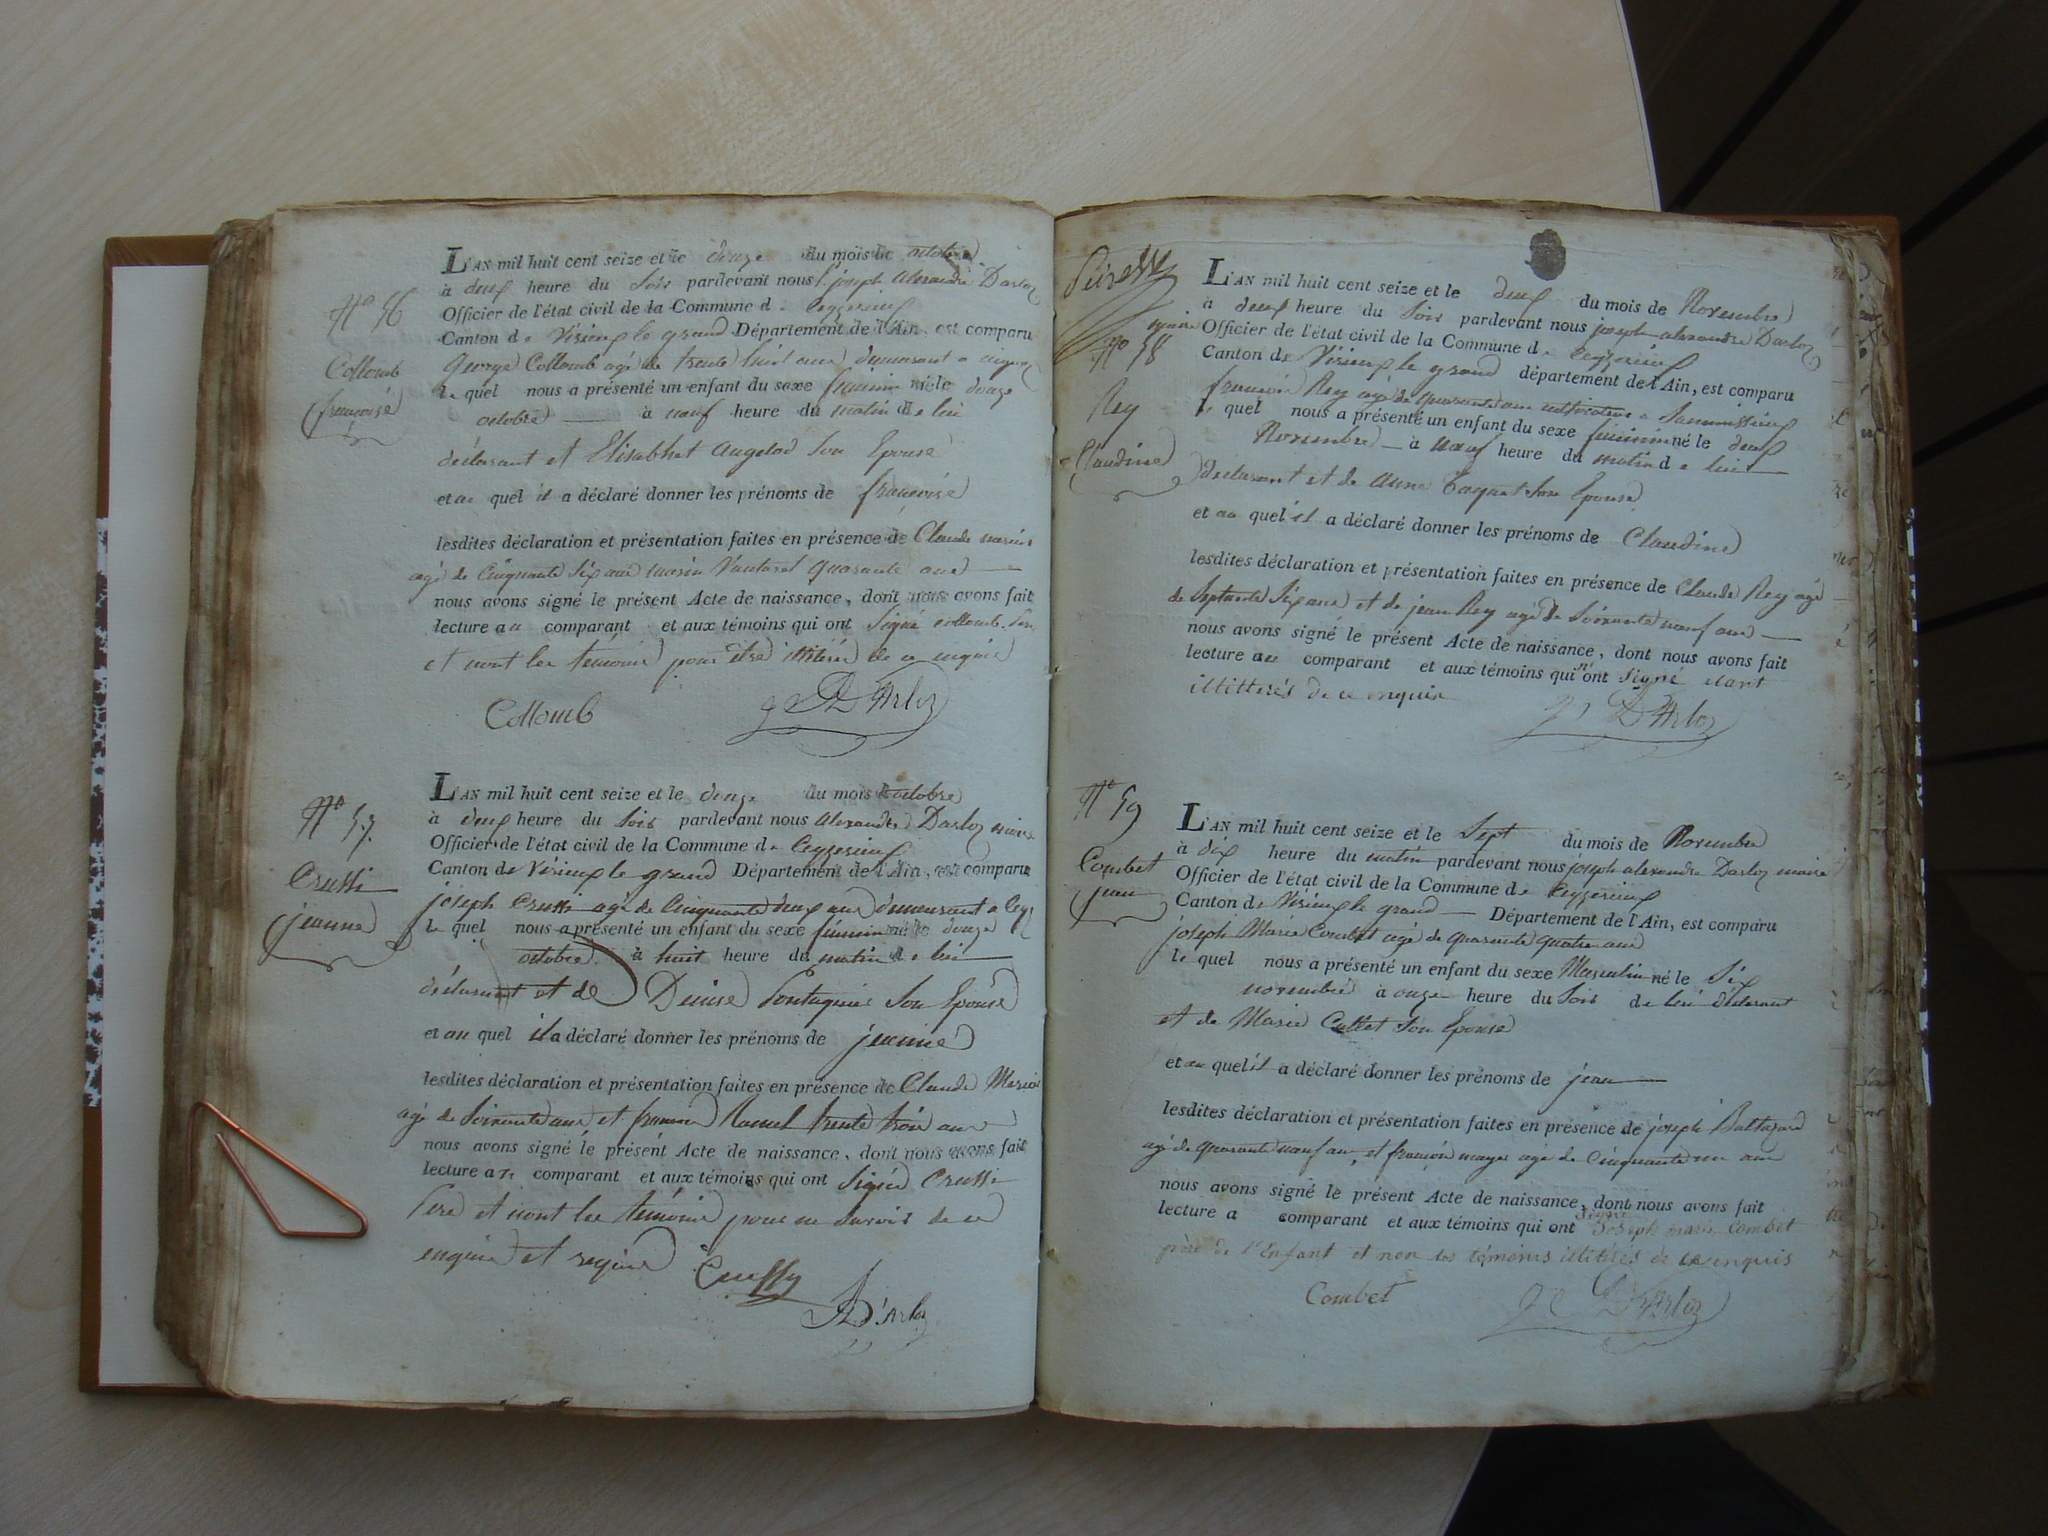 N° 56
Collomb
françoise
L'AN mil huit cent seize et le douze du mois de octobre
à deux heure du soir pardevant nous joseph alexandre Darloz
Officier de l'état civil de la Commune de Ceyzerieux
Canton de Virieux le grand Département de l'Ain, est comparu
George Collomb agé de trente huit ans demeurant a
le quel nous a présenté un enfant du sexe feminin né le douze
octobre à neuf heure du matin de lui
déclarant et Elisabhet angelod son Epouse
et au quel il a déclaré donner les prénoms de françoise
lesdites déclaration et présentation faites en présence de Claude marin
agé de Cinquante six ans marin Vautaret quarante ans
nous avons signé le présent Acte de naissance, dont nous avons fait
lecture au comparant et aux témoins qui ont signé collomb
et nont les temoins pour être illitéré de ce enquis
Collomb J A D'Arloz
N° 57.
Crussi
jeanne
L'AN mil huit cent seize et le douze du mois de octobre
à deux heure du soir pardevant nous alexandre Darloz maire
Officier de l'état civil de la Commune de Ceyzerieux
Canton de Virieux le grand Département de l'Ain, est comparu
joseph Crussi agé de Cinquante deux ans demeurant a Ceyz
le quel nous a présenté un enfant du sexe feminin né le douze
octobre à huit heure du matin de lui
déclarant et de Denise son Epouse
et au quel il a déclaré donner les prénoms de jeanne
lesdites déclaration et présentation faites en présence de Claude Marin
agé de soixante ans et françois trente trois ans
nous avons signé le présent Acte de naissance, dont nous avons fait
lecture au comparant et aux témoins qui ont signé Crussi
Pere et nont les témoins pour ne savoir de ce
enquis et requis Crussy
A D'Arloz
N° 58
Rey
Claudine
L'AN mil huit cent seize et le deux du mois de Novembre
à deux heure du soir pardevant nous joseph alexandre Darloz
maire Officier de l'état civil de la Commune de Ceyzerieux
Canton de Virieux le grand département de l'Ain, est comparu
françois Rey agé de quarante ans cultivateur a
le quel nous a présenté un enfant du sexe feminin né le deux
Novembre à neuf heure du matin de lui
declarant et de anne son Epouse
et au quel il a déclaré donner les prénoms de Claudine
lesdites déclaration et présentation faites en présence de Claude Rey agé
de septante six ans et de jean Rey agé de soixante neuf ans
nous avons signé le présent Acte de naissance, dont nous avons fait
lecture au comparant et aux témoins qui n'ont signé etant
illitterés de ce enquis
J A D'Arloz
N° 59
Combet
jean
L'AN mil huit cent seize et le Sept du mois de Novembre
à dix heure du matin pardevant nous joseph alexandre Darloz maire
Officier de l'état civil de la Commune de Ceyzerieux
Canton de Virieux le grand Département de l'Ain, est comparu
joseph Marie Combet agé de quarante quatre ans
le quel nous a présenté un enfant du sexe Masculin né le six
novembre à onze heure du soir de lui déclarant
et de Marie Cullet son Epouse
et au quel il a déclaré donner les prénoms de jean
lesdites déclaration et présentation faites en présence de joseph Baltazard
agé de quarante neuf ans, et françois agé de Cinquante un ans
nous avons signé le présent Acte de naissance, dont nous avons fait
lecture a comparant et aux témoins qui ont signé Joseph marie Combet
père de l'Enfant et non les témoins illitérés de ce enquis
Combet J A D'Arloz